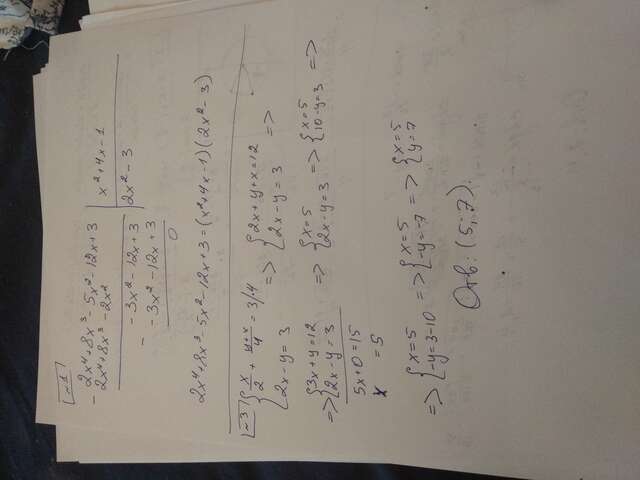 №1
2x⁴+8x³-5x²-12x+3 | x²+4x-1
- 2x⁴+8x³-2x² | 2x²-3
-3x²-12x+3
- -3x²-12x+3
0
2x⁴+8x³-5x²-12x+3=(x²+4x-1)(2x²-3)
№3 { x/2 + (y+x)/4 = 3 |·4 => { 2x+y+x=12 =>
2x-y=3 2x-y=3
=> { 3x+y=12 => { x=5 => { x=5 =>
2x-y=3 2x-y=3 10-y=3
5x+0=15
x =5
=> { x=5 => { x=5 => { x=5
-y=3-10 -y=-7 y=7
Отв: (5; 7).